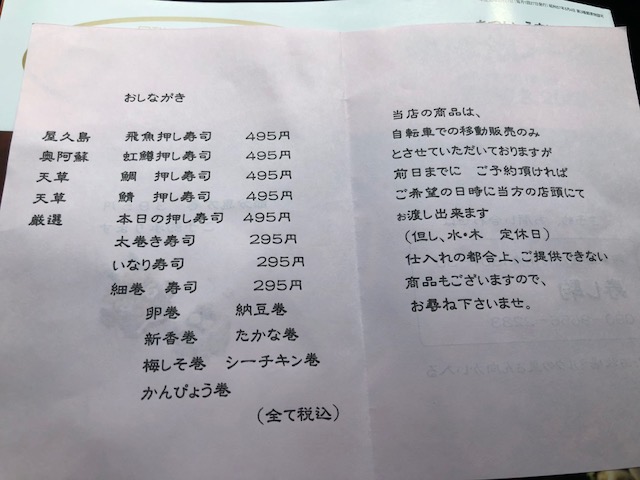 おしながき
屋久島 飛魚押し寿司 495円
奥阿蘇 虹鱒押し寿司 495円
天草 鯛 押し寿司 495円
天草 鯖 押し寿司 495円
厳選 本日の押し寿司 495円
太巻き寿司 295円
いなり寿司 295円
細巻 寿司 295円
卵巻 納豆巻
新香巻 たかな巻
梅しそ巻 シーチキン巻
かんぴょう巻
(全て税込)
当店の商品は、
自転車での移動販売のみ
とさせていただいておりますが
前日までに ご予約頂ければ
ご希望の日時に当方の店頭にて
お渡し出来ます
(但し、水・木 定休日)
仕入れの都合上、ご提供できない
商品もございますので、
お尋ね下さいませ。